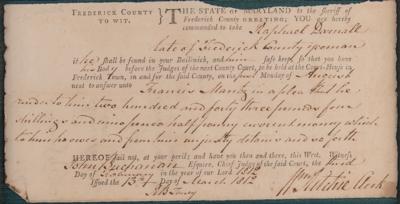 FREDERICK COUNTY TO WIT. } THE STATE OF MARYLAND to the sheriff of
Frederick County GREETING; YOU are hereby
commanded to take Raphael
late of Frederick County yeoman
if he shall be found in your Bailiwick, and him safe keep, so that you have
his Body before the Judges of the next County Court, to be held at the Court-House in
Frederick Town, in and for the said County, on the Monday of August
next to answer unto
Francis Mantz in a plea that he
render to him two hundred and forty three pounds four
shillings and nine pence half penny current money which
to him he owes and from him unjustly detains and so forth
HEREOF fail not, at your peril; and have you then and there, this Writ. Witness
John Buchanan Esquire, Chief Judge of the said Court, the third
Day of in the year of our Lord 1812
Issued the 13th Day of March 1812
Wm Ritchie Clerk